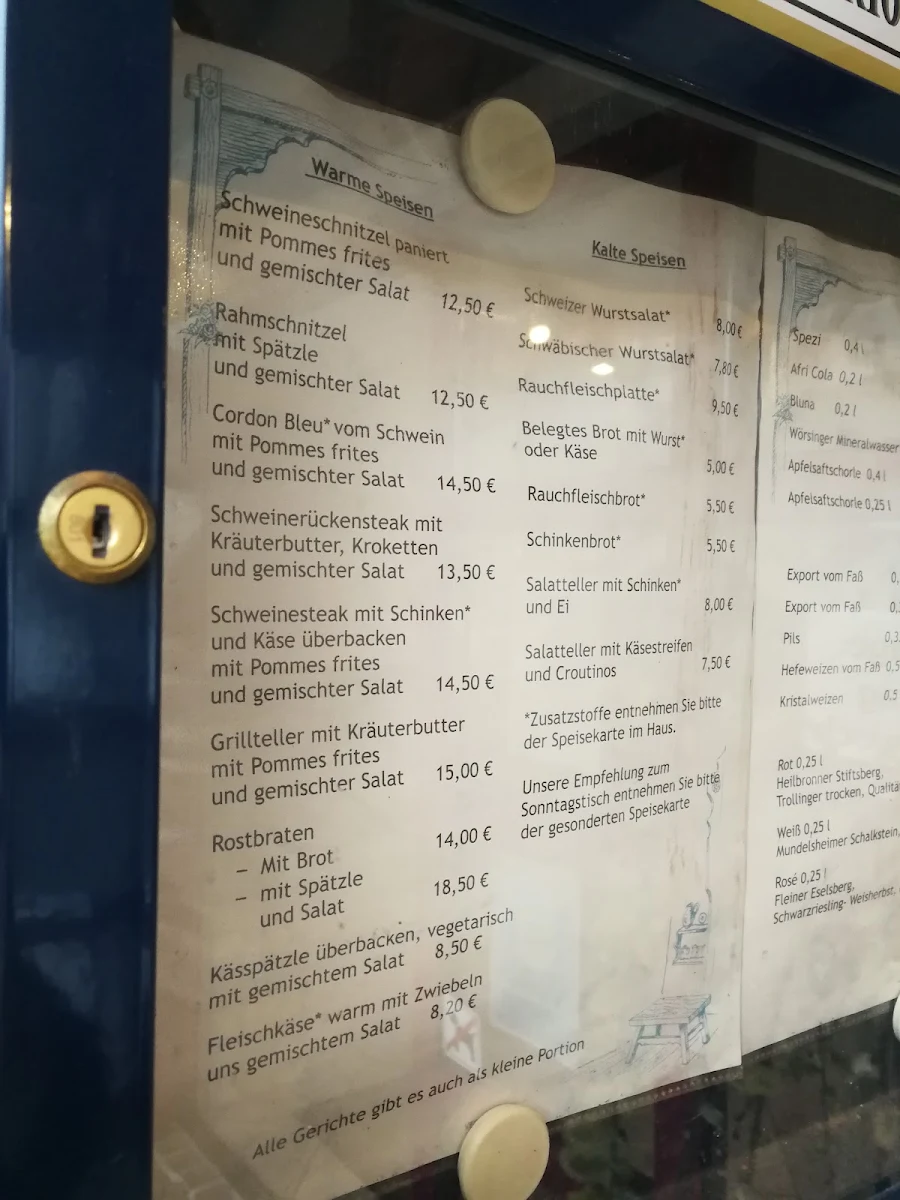 Warme Speisen
Schweineschnitzel paniert
mit Pommes frites
und gemischter Salat 12,50 €
Rahmschnitzel
mit Spätzle
und gemischter Salat 12,50 €
Cordon Bleu* vom Schwein
mit Pommes frites
und gemischter Salat 14,50 €
Schweinerückensteak mit
Kräuterbutter, Kroketten
und gemischter Salat 13,50 €
Schweinesteak mit Schinken*
und Käse überbacken
mit Pommes frites
und gemischter Salat 14,50 €
Grillteller mit Kräuterbutter
mit Pommes frites
und gemischter Salat 15,00 €
Rostbraten 14,00 €
– Mit Brot
– mit Spätzle 18,50 €
und Salat
Kässpätzle überbacken, vegetarisch
mit gemischtem Salat 8,50 €
Fleischkäse* warm mit Zwiebeln
uns gemischtem Salat 8,20 €
Alle Gerichte gibt es auch als kleine Portion
Kalte Speisen
Schweizer Wurstsalat* 8,00 €
Schwäbischer Wurstsalat* 7,80 €
Rauchfleischplatte* 9,50 €
Belegtes Brot mit Wurst*
oder Käse 5,00 €
Rauchfleischbrot* 5,50 €
Schinkenbrot* 5,50 €
Salatteller mit Schinken*
und Ei 8,00 €
Salatteller mit Käsestreifen
und Croutinos 7,50 €
*Zusatzstoffe entnehmen Sie bitte
der Speisekarte im Haus.
Unsere Empfehlung zum
Sonntagstisch entnehmen Sie bitte
der gesonderten Speisekarte
Spezi 0,4 l
Afri Cola 0,2 l
Bluna 0,2 l
Wörsinger Mineralwasser
Apfelsaftschorle 0,4 l
Apfelsaftschorle 0,25 l
Export vom Faß 0,
Export vom Faß 0,
Pils 0,3
Hefeweizen vom Faß 0,5
Kristalweizen 0,5
Rot 0,25 l
Heilbronner Stiftsberg,
Trollinger trocken,
Weiß 0,25 l
Mundelsheimer Schalkstein,
Rosé 0,25 l
Fleiner Eselsberg,
Schwarzriesling- Weisherbst,